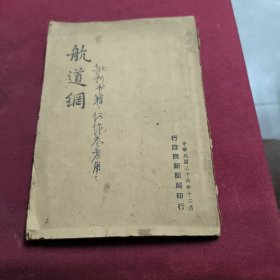 航道網
批判书籍，仅作参考用。
中華民國三十六年十二月
行政院新聞局印行